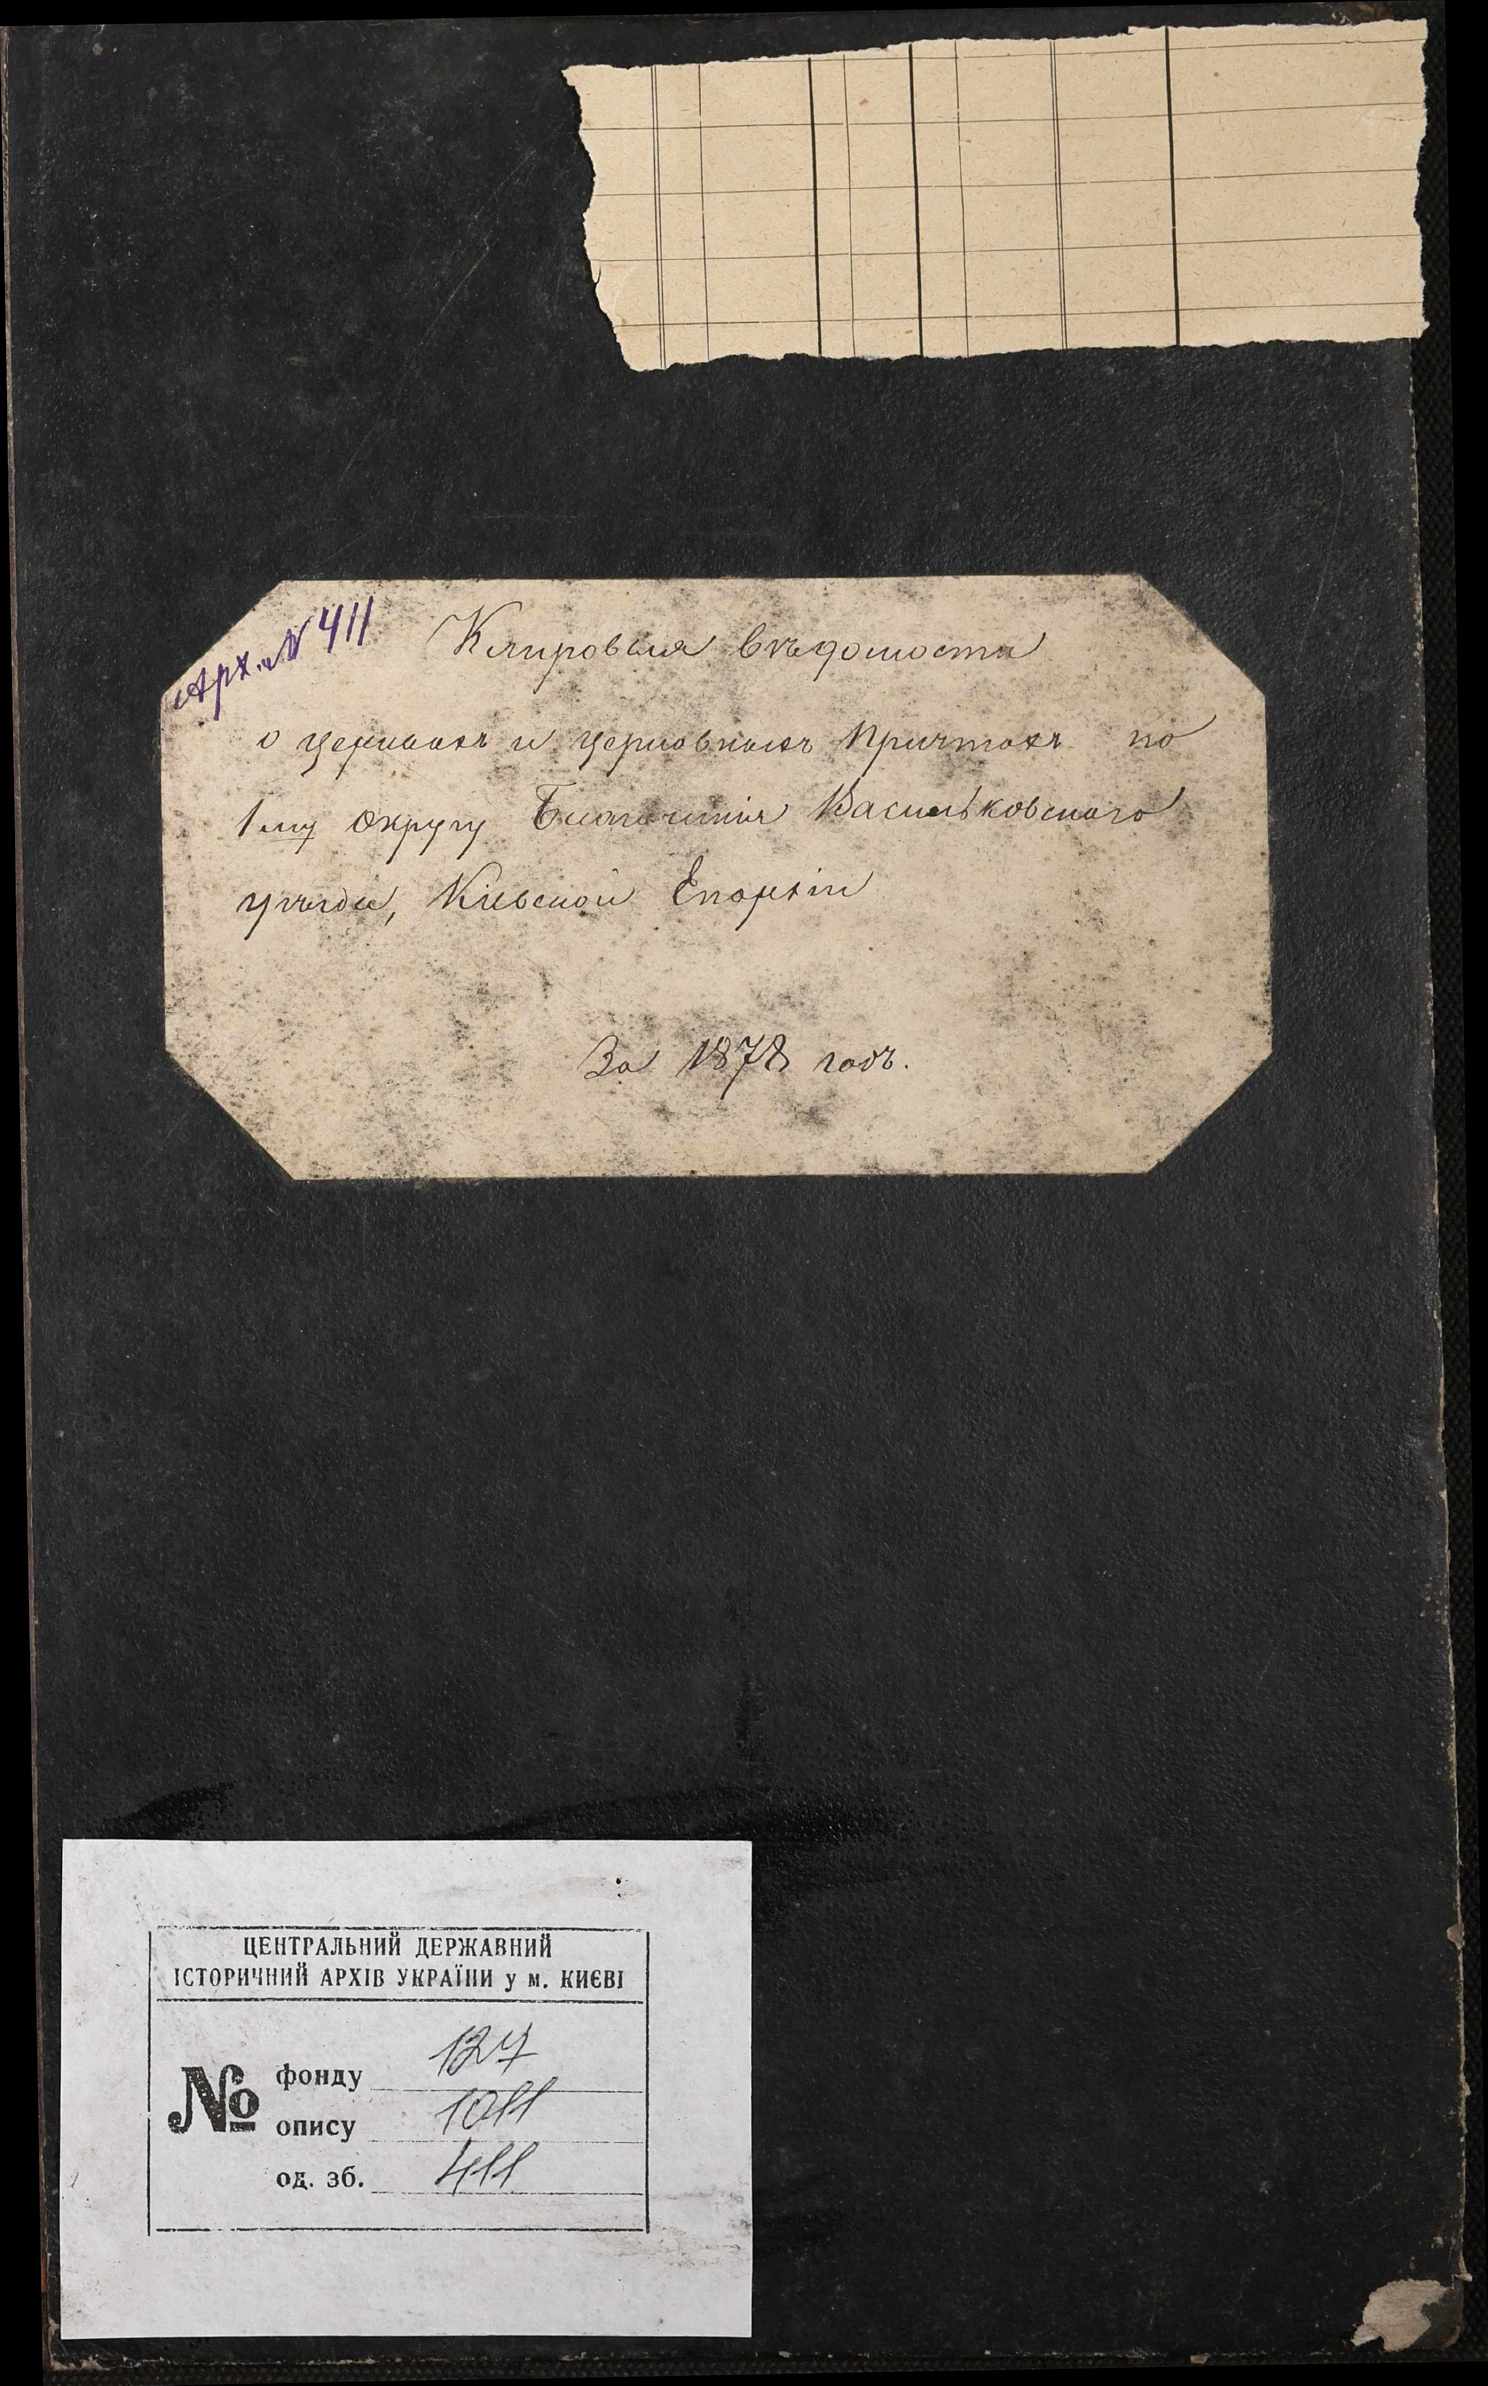 Арх. № 411
Клировыя вѣдомости
о церквахъ и церковныхъ причтахъ по
1му округу Благочинія Васильковскаго
уѣзда, Кіевской Епархіи
За 1878 годъ.
ЦЕНТРАЛЬНИЙ ДЕРЖАВНИЙ
ІСТОРИЧНИЙ АРХІВ УКРАЇНИ у м. КИЄВІ
№ фонду 127
опису 1011
од. зб. 411